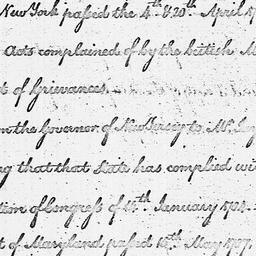 New York passed the 4th & 20th April 17
Acts complained of by the british M
t of Grievances.
m the Governor of New Jersey to Mr. Jay
ng that that State has complied wi
tion of Congress of 14th January 1784.
t of Maryland passed 15th May 1787.